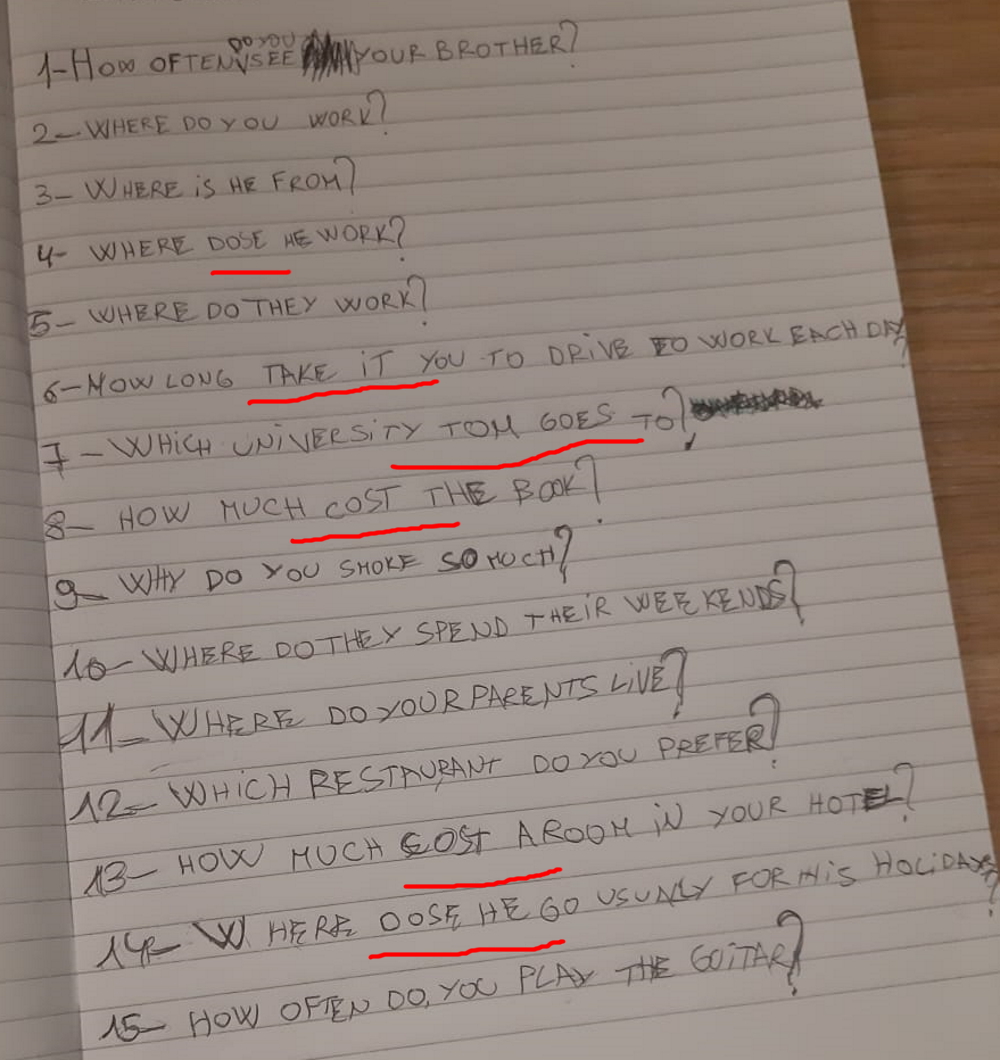 1-HOW OFTEN DO YOU SEE YOUR BROTHER?
2- WHERE DO YOU WORK?
3- WHERE iS HE FROM?
4- WHERE DOSE HE WORK?
5- WHERE DO THEY WORK?
6-HOW LONG TAKE iT YOU TO DRiVE TO WORK EACH DAY?
7- WHiCH UNiVERSiTY TOM GOES TO?
8- HOW MUCH COST THE BOOK?
9- WHY DO YOU SMOKE SO MUCH?
10- WHERE DO THEY SPEND THEiR WEEKENDS?
11- WHERE DO YOUR PARENTS LiVE?
12- WHiCH RESTAURANT DO YOU PREFER?
13- HOW MUCH COST A ROOM iN YOUR HOTEL?
14- WHERE DOSE HE GO USUALLY FOR HiS HOLiDAYS?
15- HOW OFTEN DO YOU PLAY THE GUiTAR?